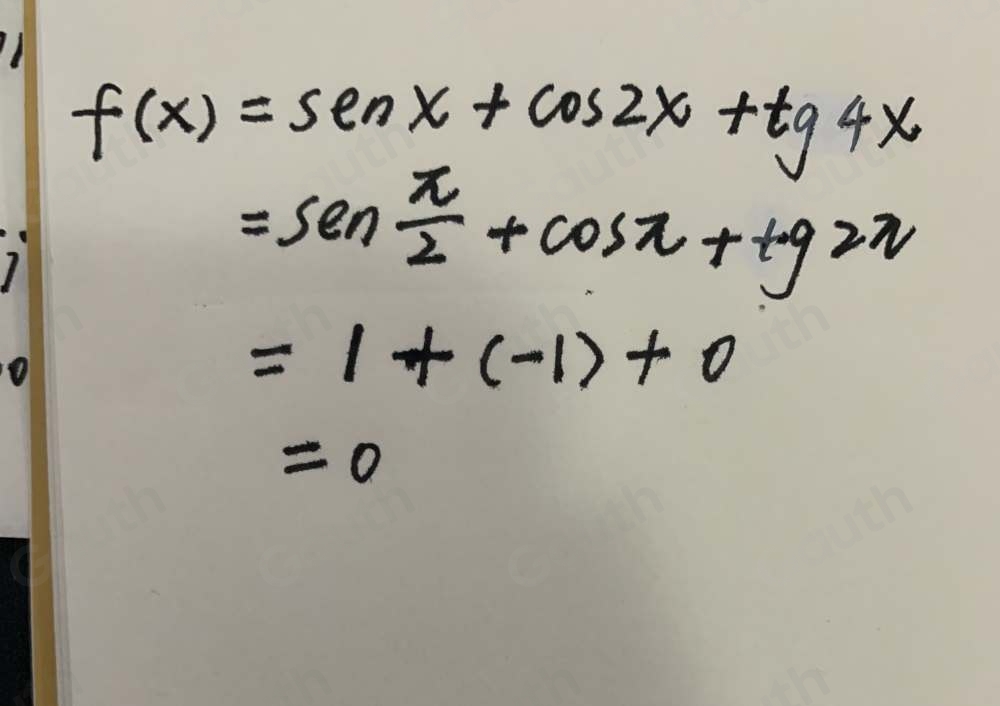 f(x) = sen x + cos 2x + tg 4x
= sen π/2 + cos π + tg 2π
= 1 + (-1) + 0
= 0